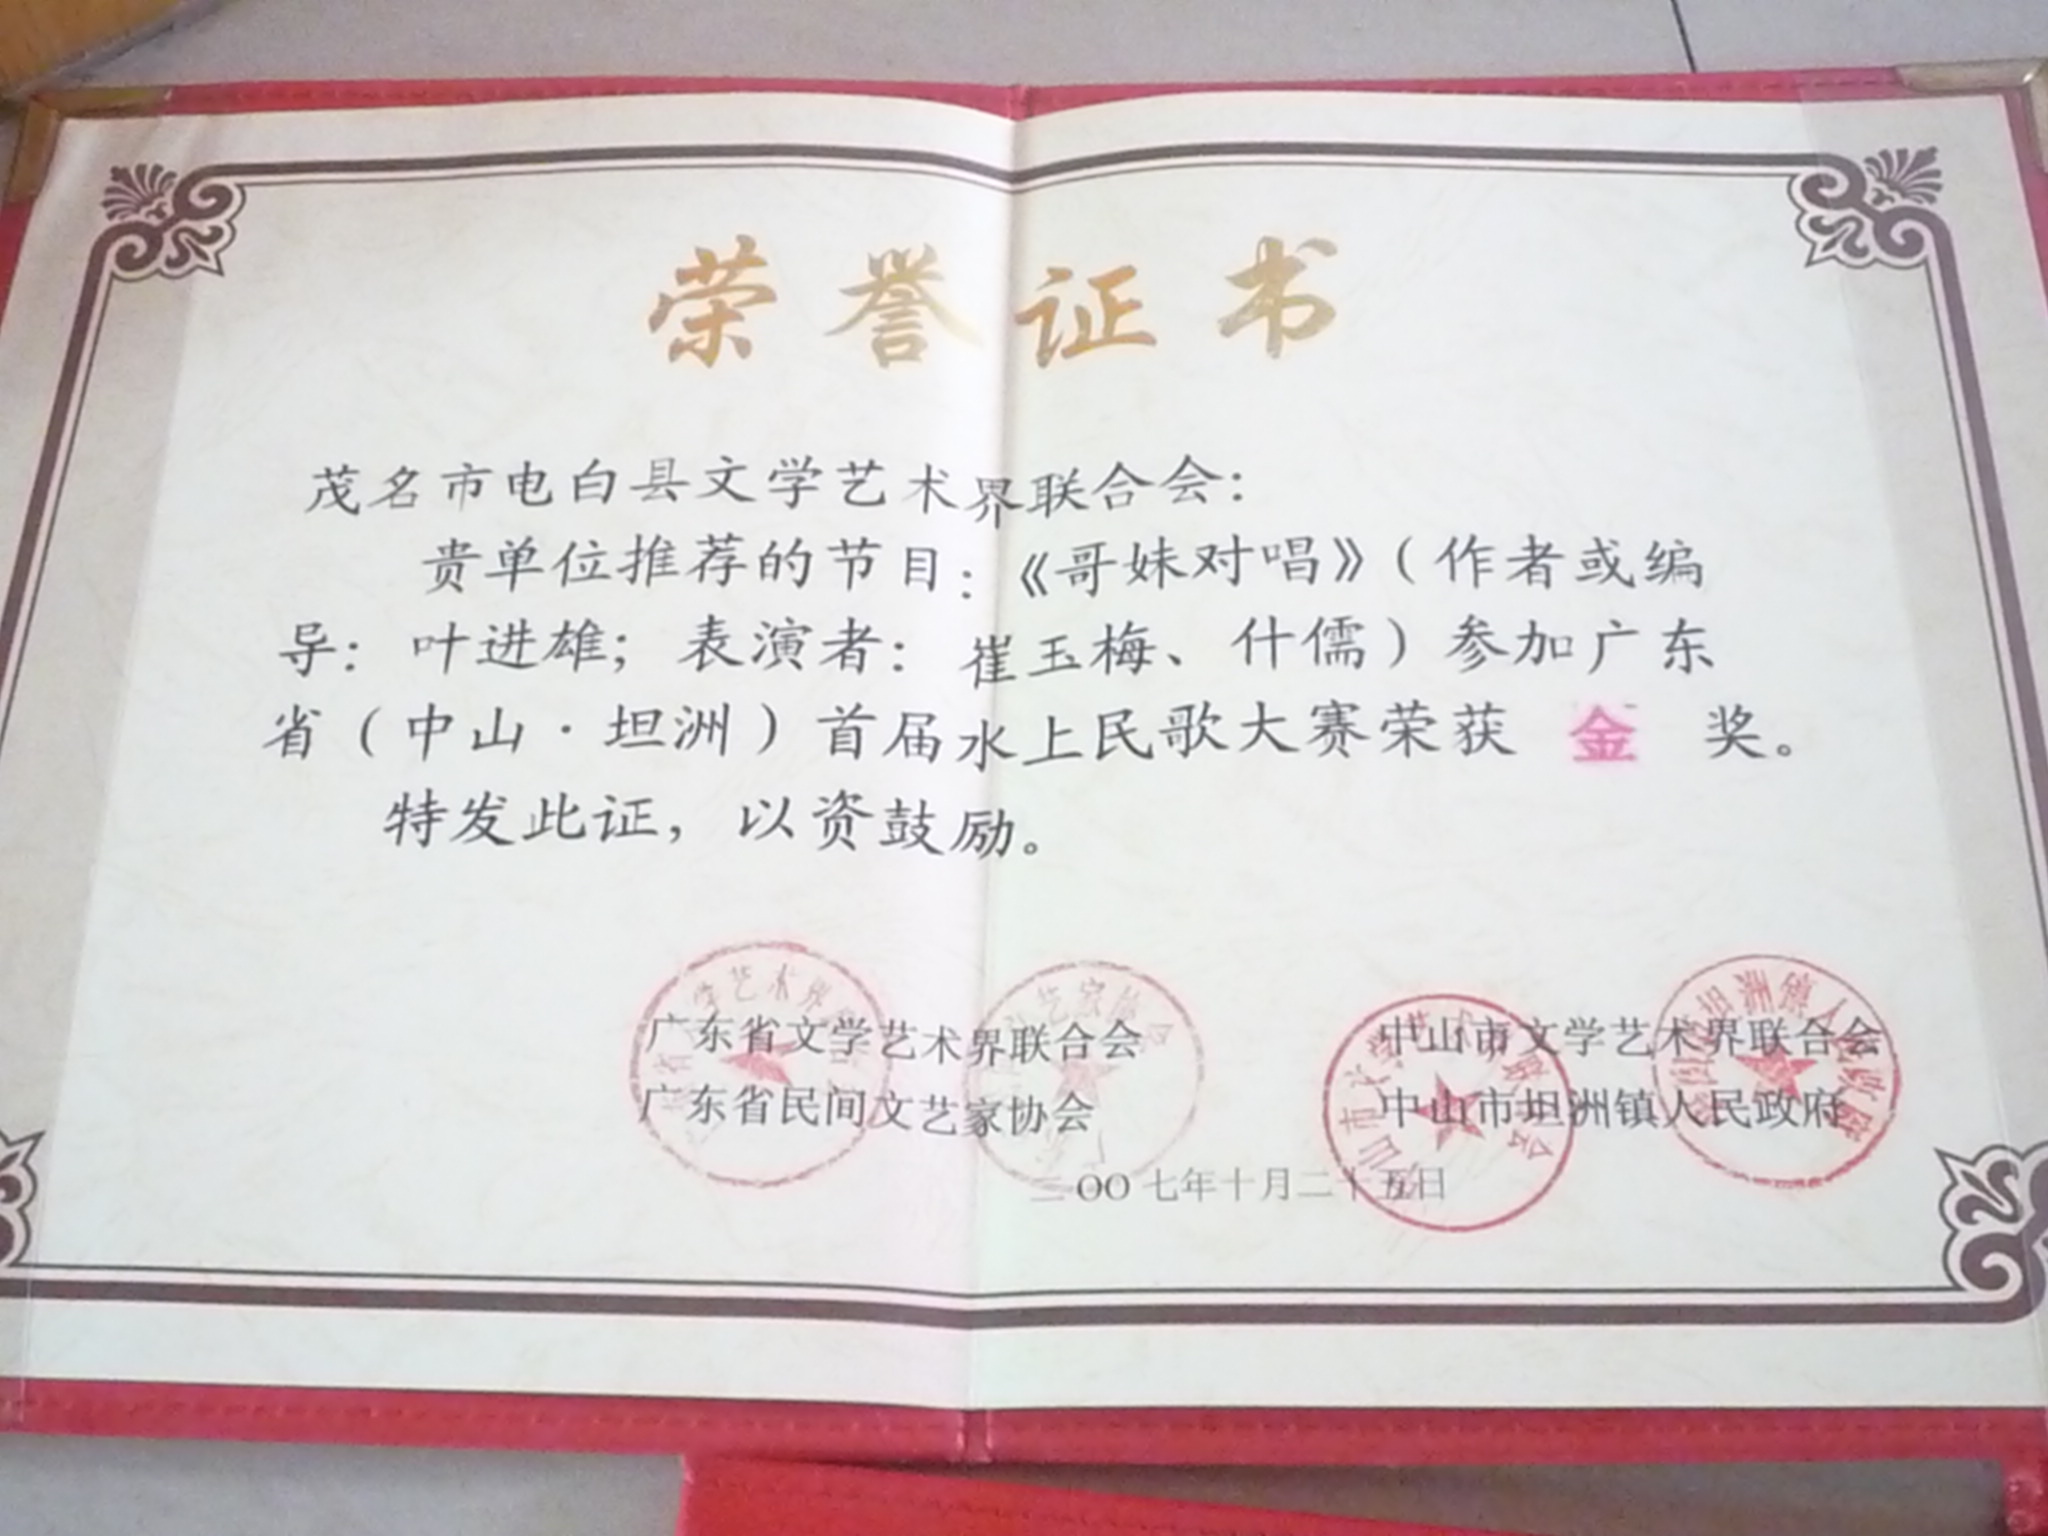 荣誉证书
茂名市电白县文学艺术界联合会：
贵单位推荐的节目：《哥妹对唱》（作者或编
导：叶进雄；表演者：崔玉梅、什儒）参加广东
省（中山·坦洲）首届水上民歌大赛荣获 金 奖。
特发此证，以资鼓励。
广东省文学艺术界联合会 中山市文学艺术界联合会
广东省民间文艺家协会 中山市坦洲镇人民政府
二OO七年十月二十五日